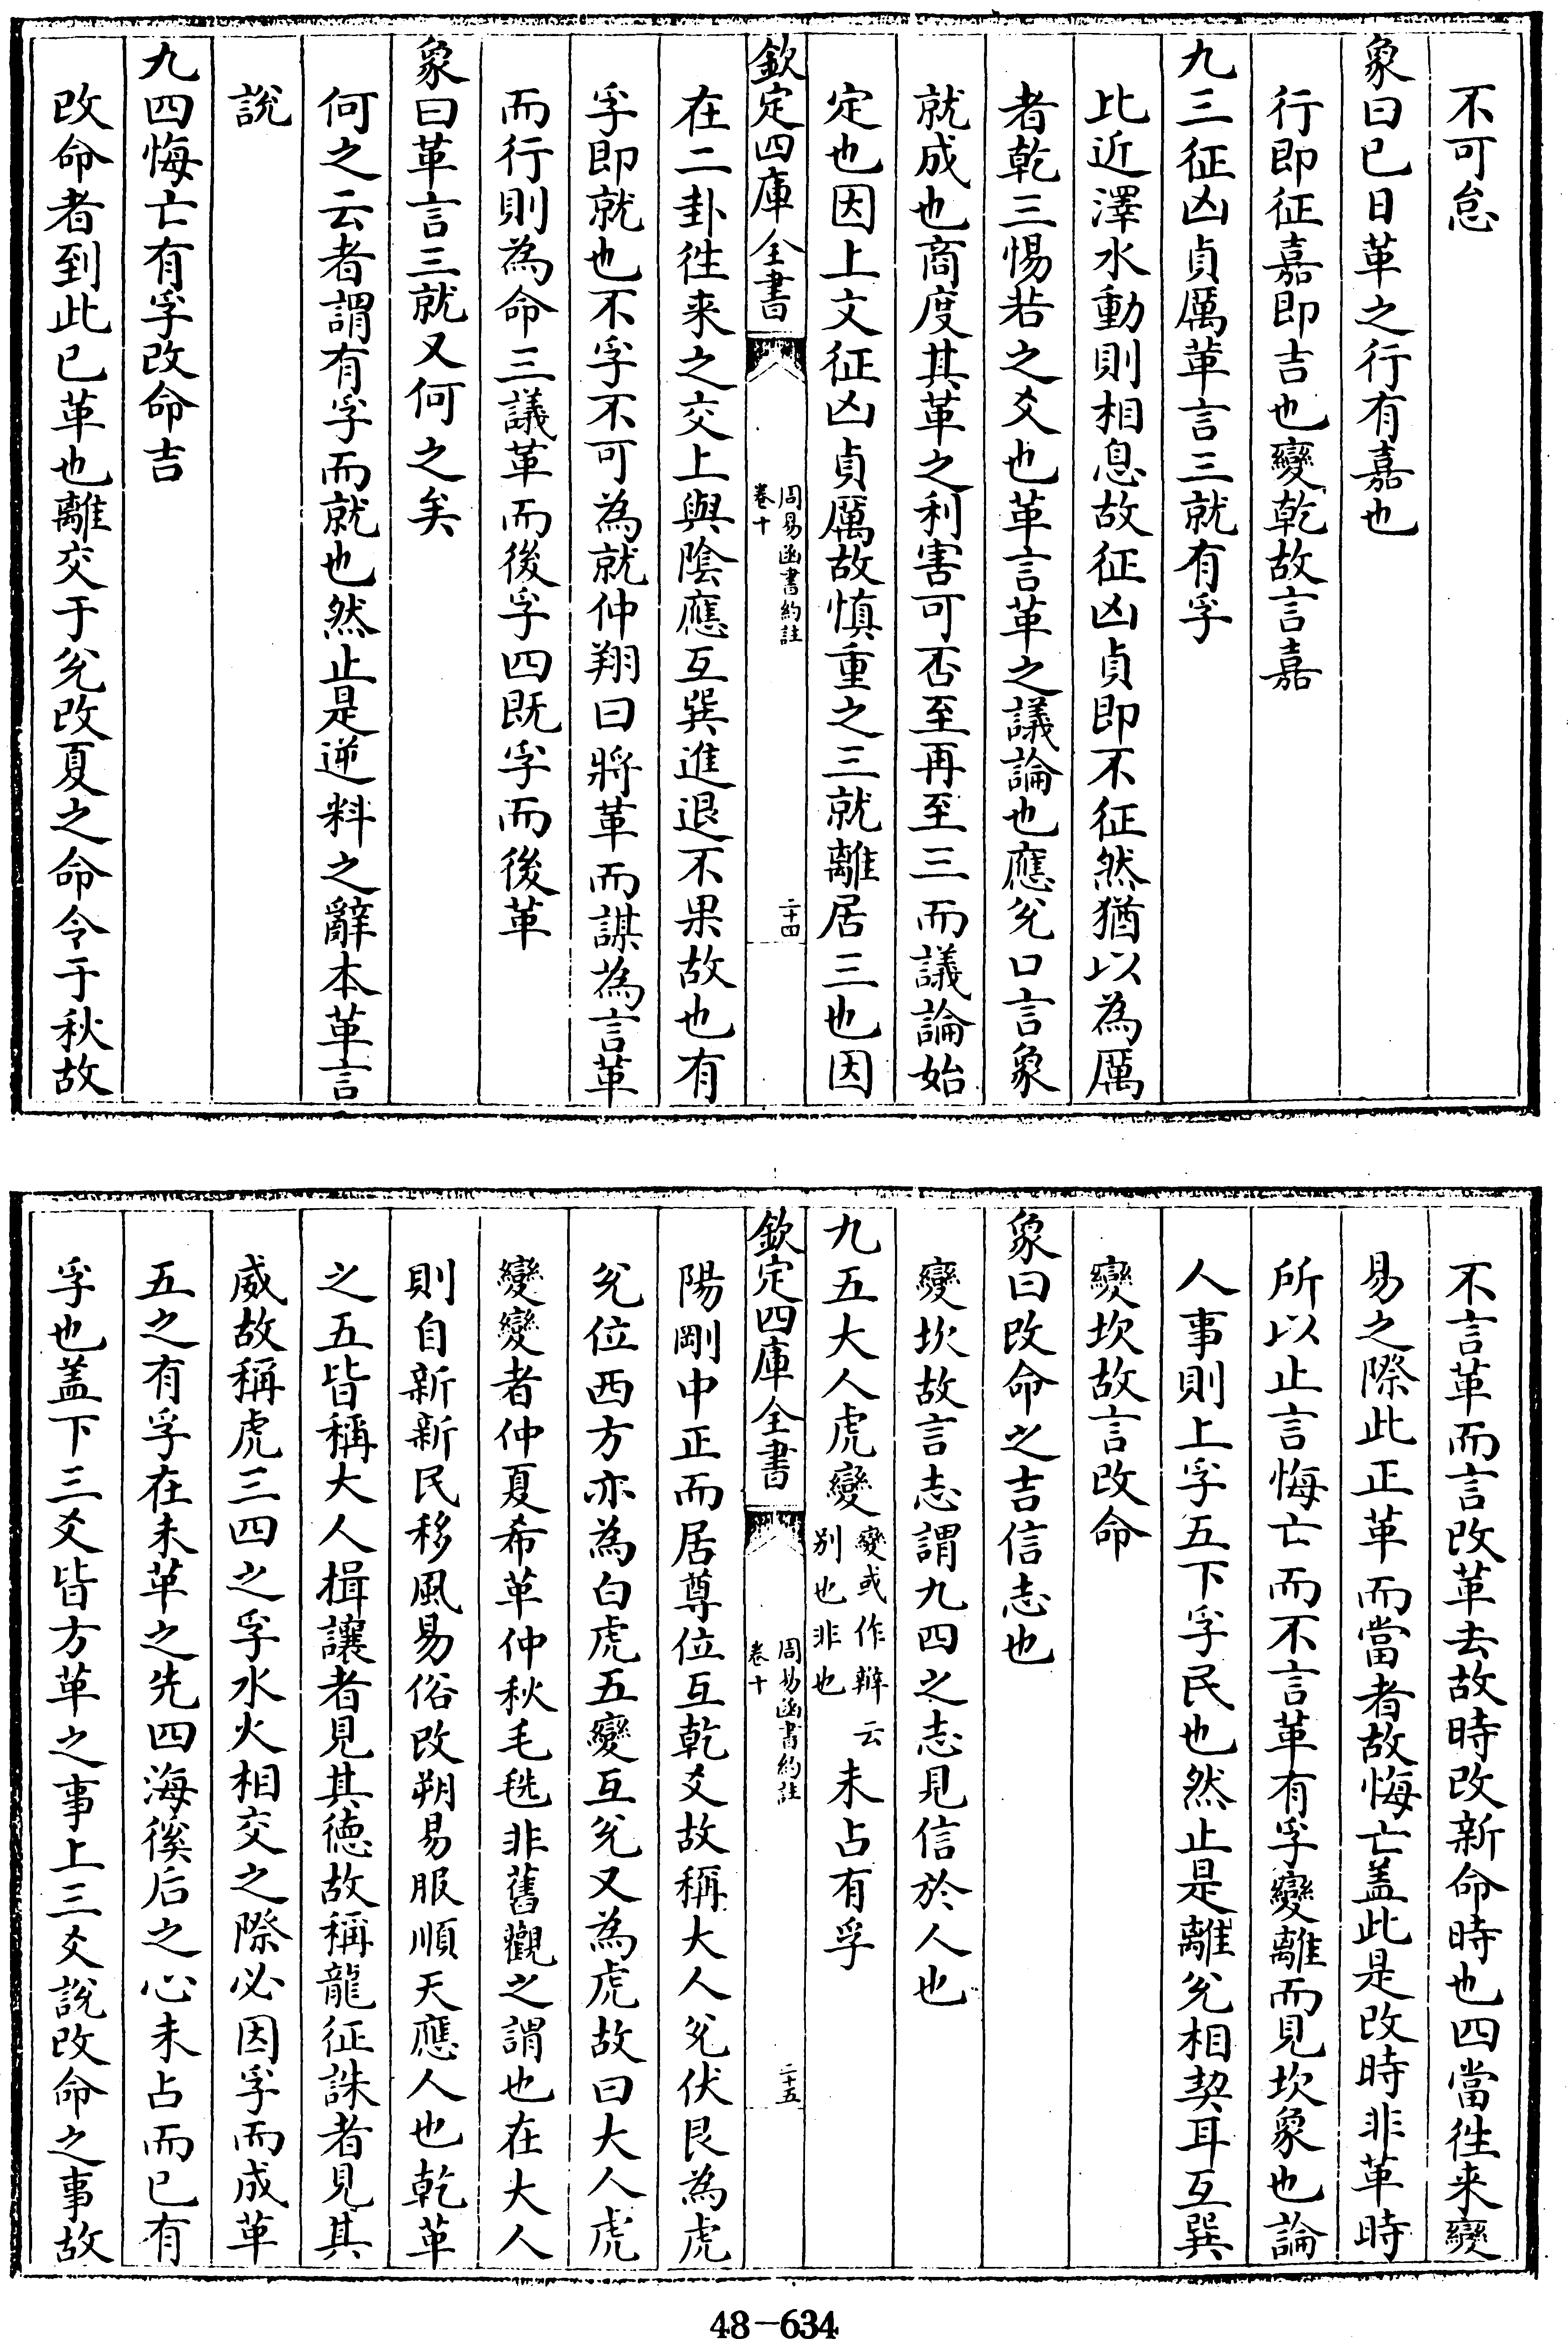 不可怠
象曰已日革之行有嘉也
行即征嘉即吉也變乾故言嘉
九三征凶貞厲革言三就有孚
比近澤水動則相息故征凶貞即不征然猶以為厲
者乾三惕若之爻也革言革之議論也應兊口言象
就成也商度其革之利害可否至再至三而議論始
定也因上文征凶貞厲故慎重之三就離居三也因
欽定四庫全書
周易函書約註
卷十
二十四
在二卦徃来之交上與陰應互巽進退不果故也有
孚即就也不孚不可為就仲翔曰將革而謀為言革
而行則為命三議革而後孚四既孚而後革
象曰革言三就又何之矣
何之云者謂有孚而就也然止是逆料之辭本革言
說
九四悔亡有孚改命吉
改命者到此已革也離交于兊改夏之命令于秋故
不言革而言改革去故時改新命時也四當徃来變
易之際此正革而當者故悔亡盖此是改時非革時
所以止言悔亡而不言革有孚變離而見坎象也論
人事則上孚五下孚民也然止是離兊相契耳互巽
變坎故言改命
象曰改命之吉信志也
變坎故言志謂九四之志見信於人也
九五大人虎變變或作辬云别也非也未占有孚
欽定四庫全書
周易函書約註
卷十
二十五
陽剛中正而居尊位互乾爻故稱大人兊伏艮為虎
兊位西方亦為白虎五變互兊又為虎故曰大人虎
變變者仲夏希革仲秋毛毨非舊觀之謂也在大人
則自新新民移風易俗改朔易服順天應人也乾革
之五皆稱大人揖讓者見其德故稱龍征誅者見其
威故稱虎三四之孚水火相交之際必因孚而成革
五之有孚在未革之先四海徯后之心未占而已有
孚也盖下三爻皆方革之事上三爻說改命之事故
48-634